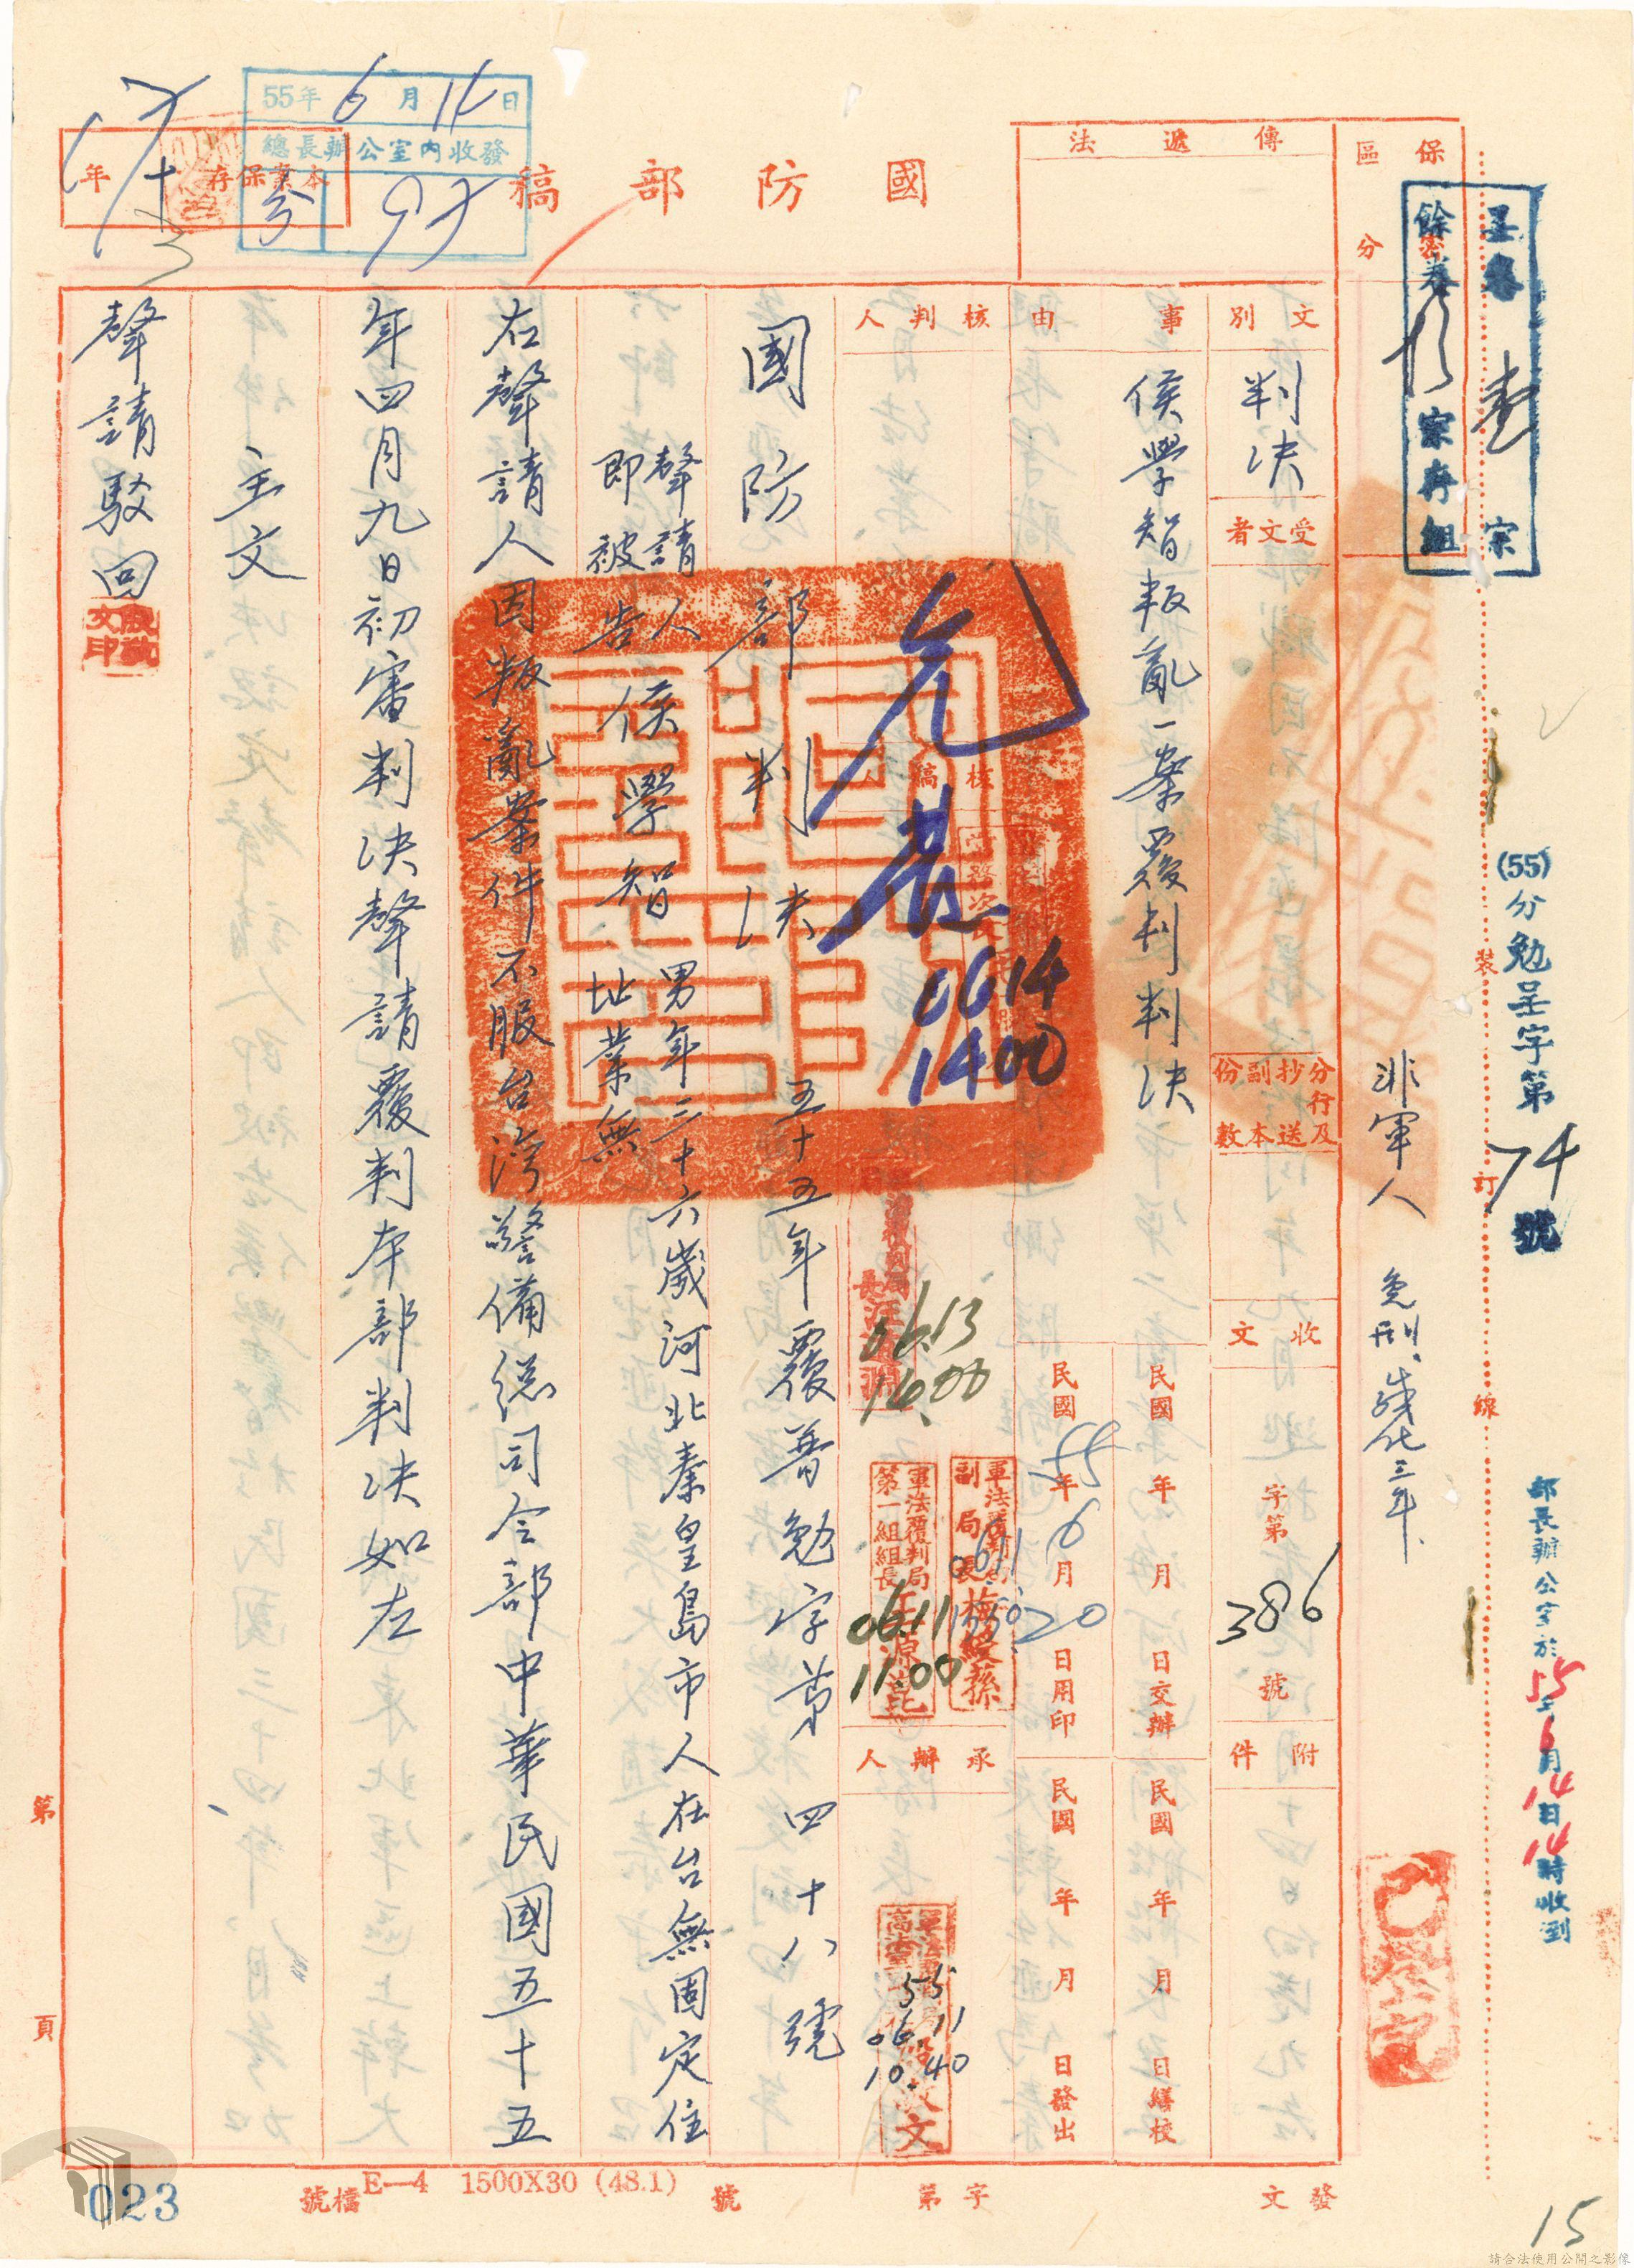 呈卷壹宗
餘卷宗存組
(55)分勉呈字第74號
部長辦公室於55年6月14日14時收到
裝
訂
線
保
區分
非軍人
免刑、感化三年、
傳遞法
國防部稿
55年6月11日
總長辦公室內收發
本案保存十年
文別
判決
受文者
分行及抄送副本份數
收文
字第386號
附件
事由
侯學智叛亂一案覆判判決
民國 年 月 日交辦
民國 年 月 日繕校
民國55年6月20日用印
民國 年 月 日發出
核判人
核稿人
允
0614
1400
06.13
16.00
軍法覆判局副局長梅綬蓀
軍法覆判局第一組組長
06.11
11.00
承辦人
55
06.11
10.40
國防部判決
五十五年覆普勉字第四十八號
聲請人
即被告
侯學智
男年三十六歲河北秦皇島市人在台無固定住
址業無
右聲請人因叛亂案件不服台灣警備總司令部中華民國五十五
年四月九日初審判決聲請覆判本部判決如左
主文
聲請駁回
第
頁
發文
字第
號
檔號
E—4 1500X30 (48.1)
023
15
請合法使用公開之影像